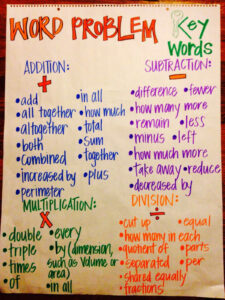 WORD PROBLEM Key Words
ADDITION:
+
• add
• all together
• altogether
• both
• combined
• increased by
• perimeter
• in all
• how much
• total
• sum
• together
• plus
SUBTRACTION:
−
• difference • fewer
• how many more
• remain • less
• minus • left
• how much more
• take away • reduce
• decreased by
MULTIPLICATION:
x
• double
• triple
• times
• of
• every
• by (dimension,
such as Volume or
area)
• in all
DIVISION:
÷
• cut up • equal
• how many in each
• quotient of • parts
• separated • per
• shared equally
• fractions